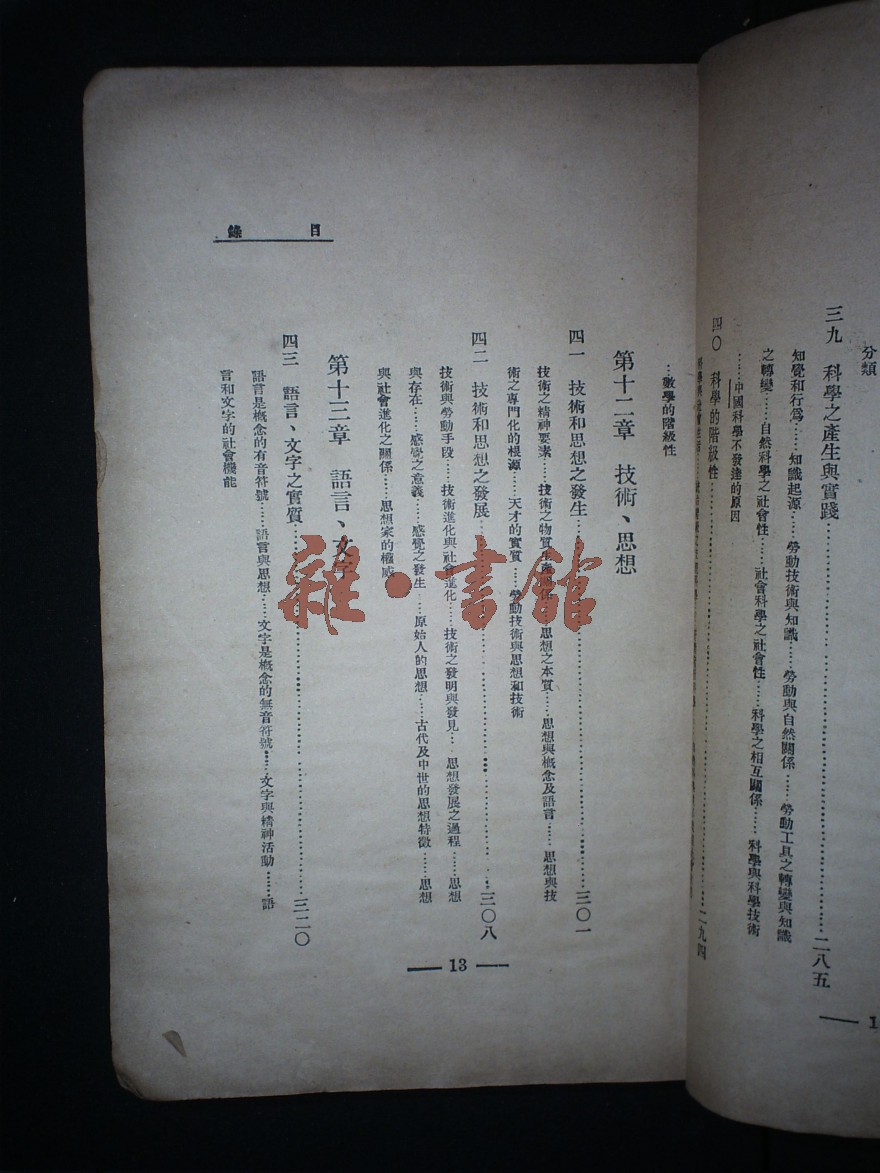 分類
三九 科學之產生與實踐……二八五
知覺和行爲……知識起源……勞動技術與知識……勞動與自然關係……勞動工具之轉變與知識
之轉變……自然科學之社會性……社會科學之社會性……科學之相互關係……科學與科學技術
……中國科學不發達的原因
四〇 科學的階級性……二九四
…數學的階級性
目錄
第十二章 技術、思想
四一 技術和思想之發生……三〇一
技術之精神要素……技術之物質生產關係……思想之本質……思想與概念及語言……思想與技
術之專門化的根源……天才的實質……勞動技術與思想和技術
四二 技術和思想之發展……三〇八
技術與勞動手段……技術進化與社會進化……技術之發明與發見…思想發展之過程……思想
與存在……感覺之意義……感覺之發生…原始人的思想……古代及中世的思想特徵……思想
與社會進化之關係……思想家的權威
第十三章 語言、文字
四三 語言、文字之實質……三二〇
語言是概念的有音符號……語言與思想……文字是概念的無音符號……文字與精神活動……語
言和文字的社會機能
— 13 —
雜·書館